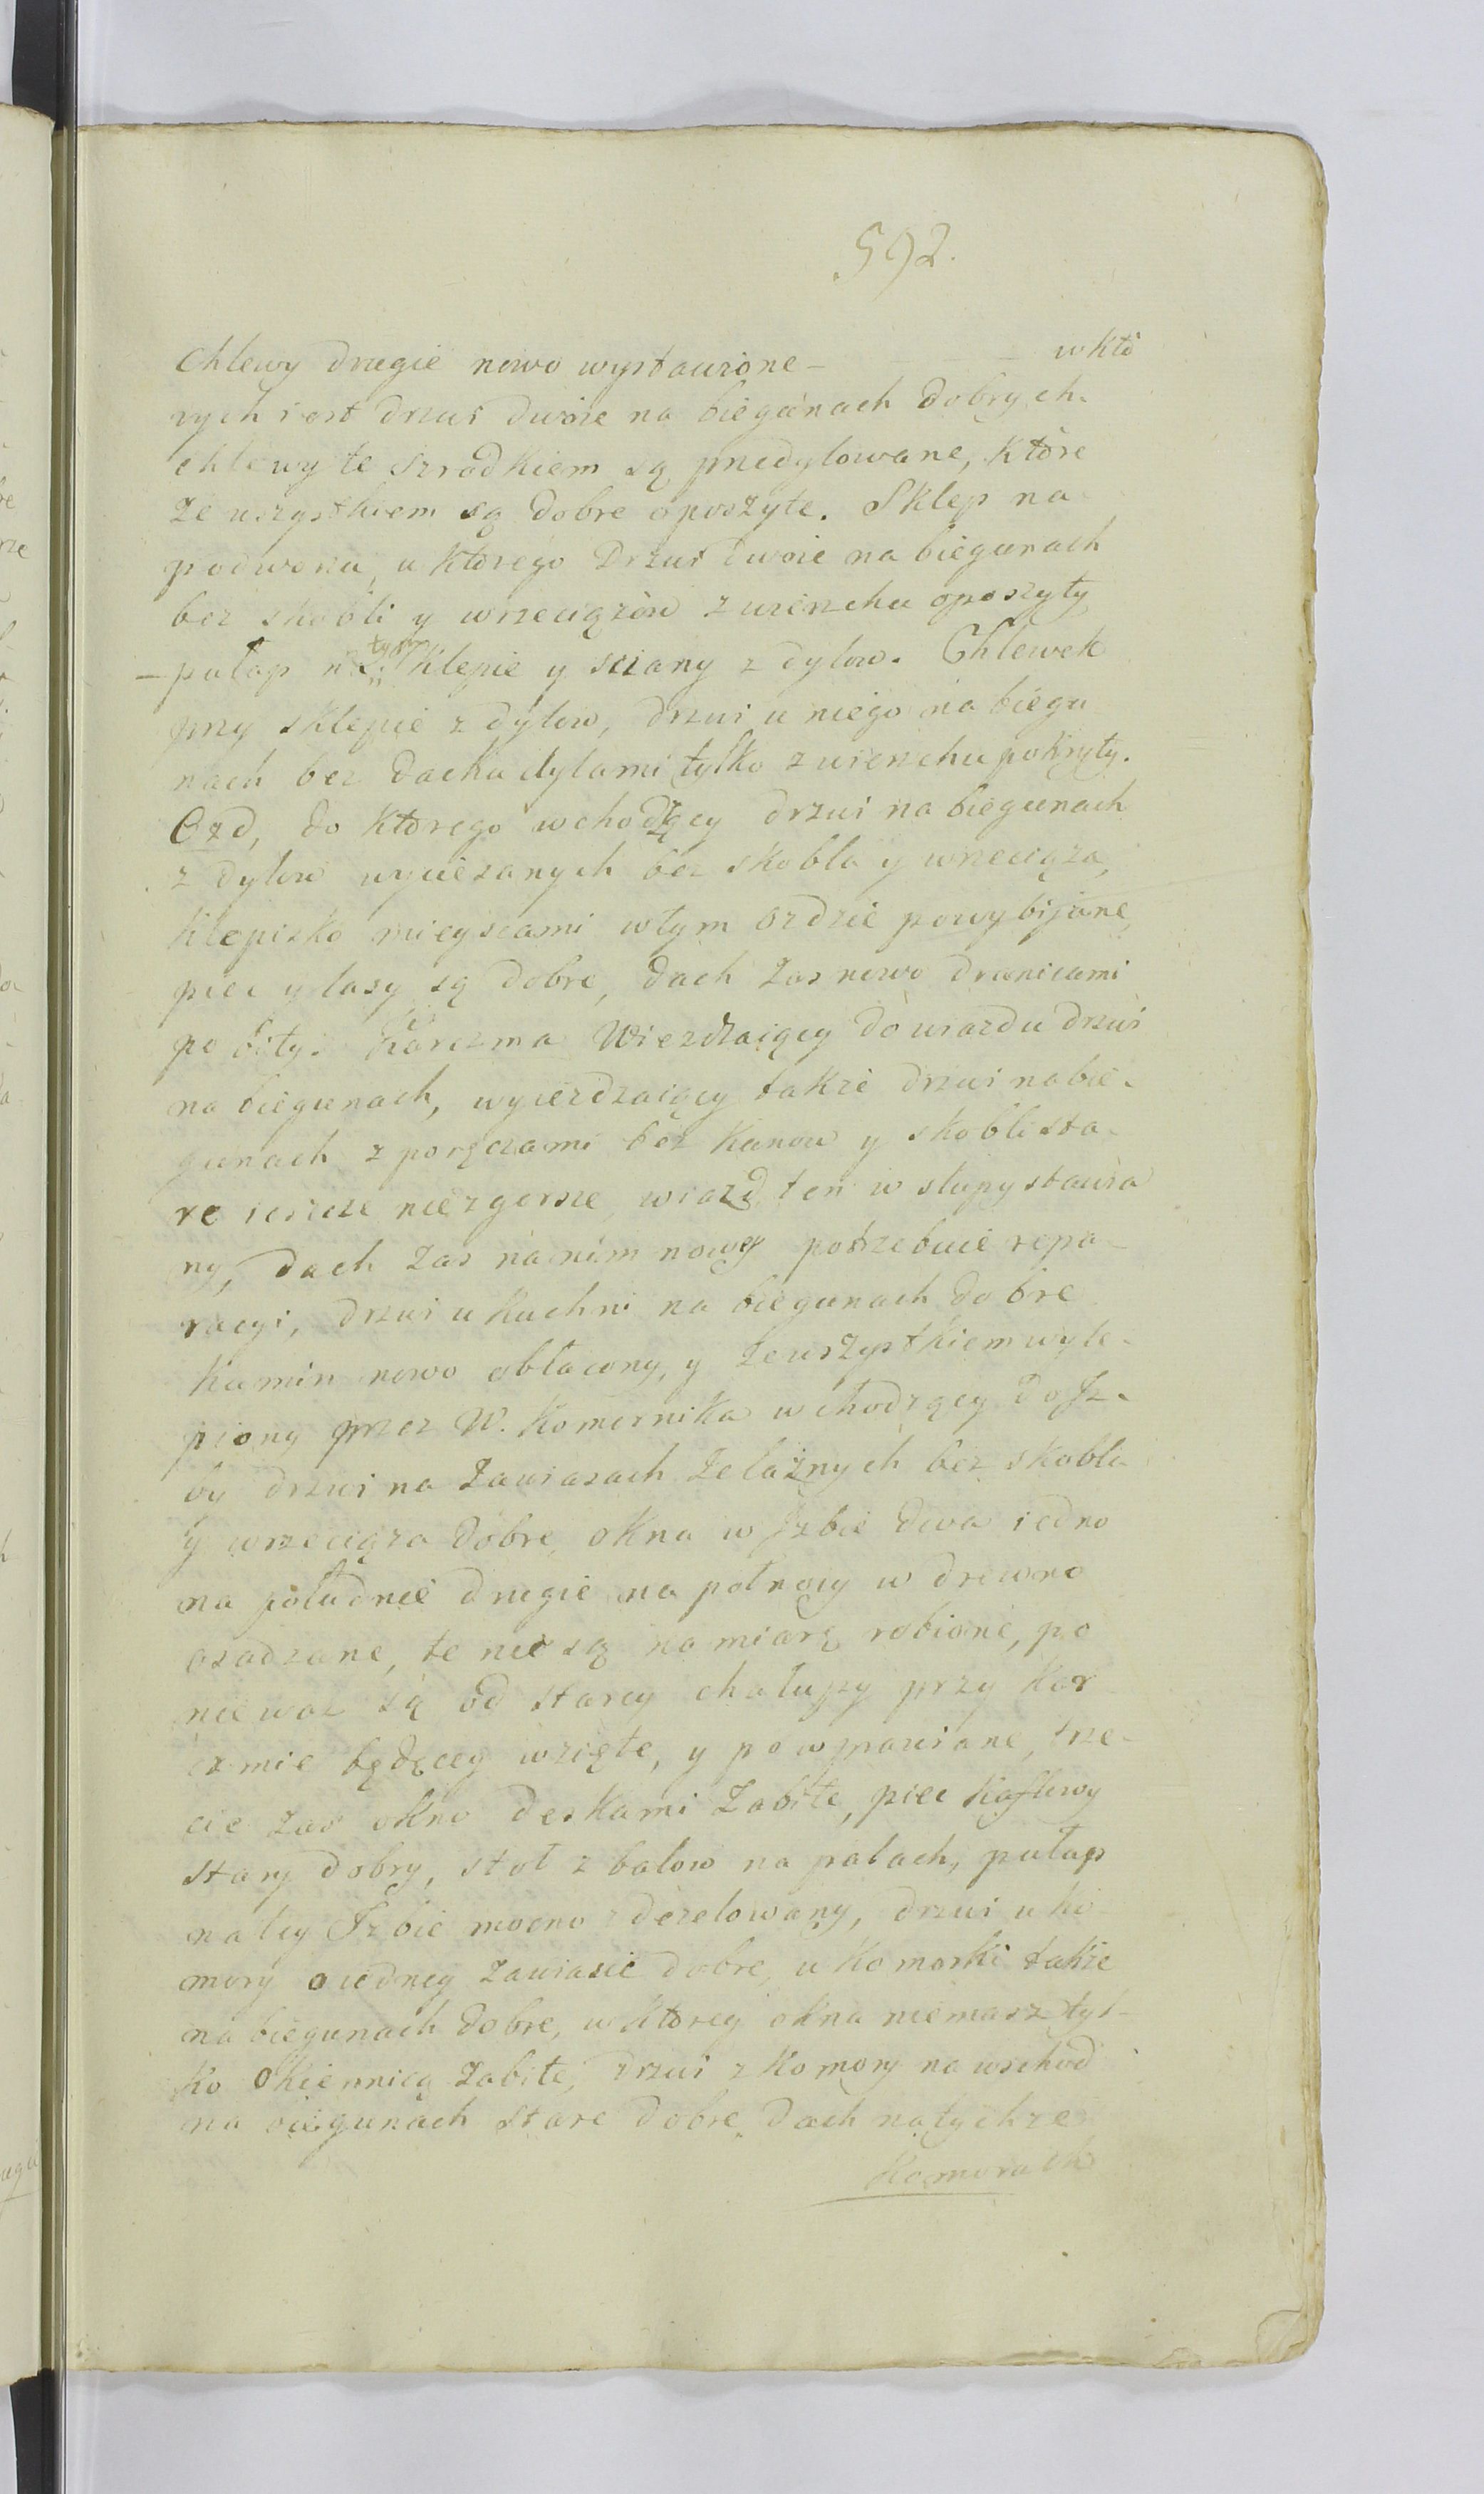 592.
Chlewy drugie nowo wystawione – – w kto
rych iest drzwi dwoie na biegunach dobrych.
chlewy te szrodkiem są przedylowane, które
ze wszystkiem są dobre o poszyte. Sklep na
podworzu, u ktorego Drzwi dwoie na biegunach
bez skobli y wrzeciązow z wierzchu oposzyty
– pułap na tym Sklepie y sciany z dylow. Chlewek
przy sklepie z dylow, drzwi u niego na biegu
nach bez dachu dylami tylko z wierzchu pokryty.
Ozd, do ktorego wchodzący drzwi na biegunach
z dylow wyciesanych bez skobla y wrzeciąza,
klepisko mieyscami w tym ozdzie powybijane,
piec y lasy są dobre, dach zas nowo dranicami
po bity. Karczma Wiezdzaiący do wiazdu drzwi
na biegunach, wyiezdzaiący takze drzwi na bie-
gunach z poręczami bez kunow y skobli sta-
re ieszcze niezgorsze, wiazd ten w słupy stawia
ny, dach zas na nim nowy potrzebuie repa-
racyi, drzwi u kuchni na biegunach dobre
Kamin nowo obłacony, y ze wszystkiem wyle-
piony przez W. Komornika wchodzący do Iz-
by drzwi na zawiasach zelaznych bez skobla
y wrzeciąza dobre, okna w Izbie dwa iedno
na południe drugie na połnocy w drewno
osadzane, te nie są na miarę robione, po
niewaz są od starey chałupy przy kar
czmie będącey wzięte, y powprawiane, trze-
cie zas okno deskami zabite, piec kaflowy
stary dobry, stoł z balow na palach, pułap
na tey Izbie mocno zdezelowany, drzwi u ko
mory o iedney zawiasie dobre, u komorki takze
na biegunach dobre, w ktorey okna niemasz tyl-
ko Okiennicą zabite, drzwi z komory na wschod
na biegunach stare dobre, dach na tychze
Komorach